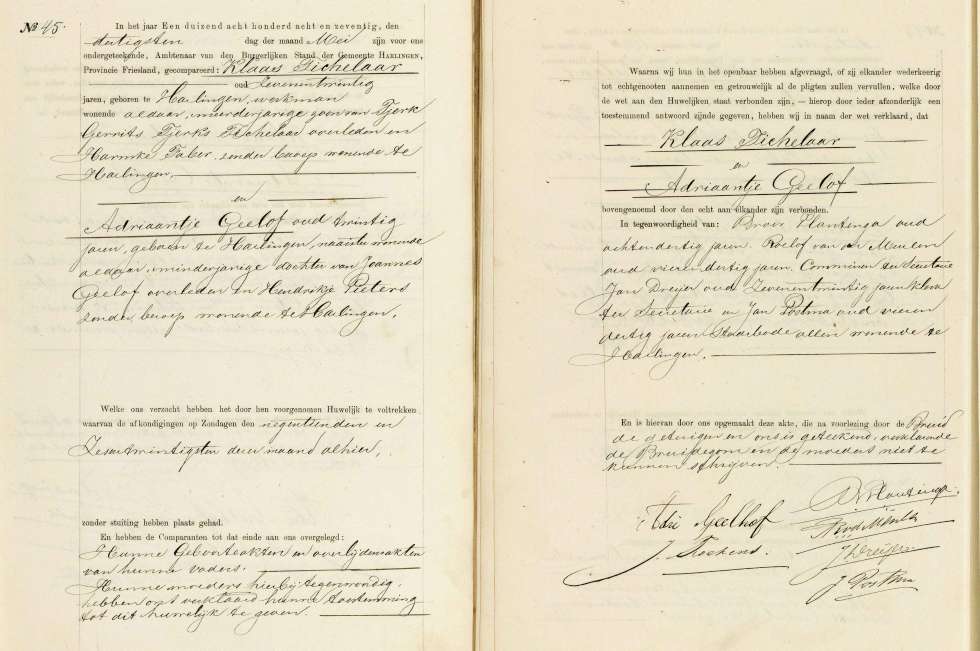 № 45.
In het jaar Een duizend acht honderd acht en zeventig, den
dertigsten dag der maand Mei zijn voor ons
ondergeteekende, Ambtenaar van den Burgerlijken Stand der Gemeente HARLINGEN,
Provincie Friesland, gecompareerd: Klaas Tichelaar
oud zevenentwintig
jaren, geboren te Harlingen, werkman
wonende aldaar, meerderjarige zoon van Tjerk
Gerrits Tjerks Tichelaar overleden en
Harmke Faber, zonder beroep wonende te
Harlingen,
en
Adriaantje Geelof oud twintig
jaren, geboren te Harlingen, naaister wonende
aldaar, minderjarige dochter van Joannes
Geelof overleden en Hendrikje Pieters
zonder beroep wonende te Harlingen,
Welke ons verzocht hebben het door hen voorgenomen Huwelijk te voltrekken
waarvan de afkondigingen op Zondagen den negentienden en
Zesentwintigsten dezer maand alhier,
zonder stuiting hebben plaats gehad.
En hebben de Comparanten tot dat einde aan ons overgelegd:
Hunne Geboorteakten en overlijdensakten
van hunne vaders.
Hunne moeders hierbij tegenwoordig,
hebben ons verklaard hunne toestemming
tot dit huwelijk te geven.
Waarna wij hun in het openbaar hebben afgevraagd, of zij elkander wederkeerig
tot echtgenooten aannemen en getrouwelijk al de pligten zullen vervullen, welke door
de wet aan den Huwelijken staat verbonden zijn, – hierop door ieder afzonderlijk een
toestemmend antwoord zijnde gegeven, hebben wij in naam der wet verklaard, dat
Klaas Tichelaar
en
Adriaantje Geelof
bovengenoemd door den echt aan elkander zijn verbonden.
In tegenwoordigheid van: Broer Plantenga oud
achtendertig jaren, Roelof van der Meulen
oud vierendertig jaren, Commiezen ter Secretarie
Jan Dreyer oud Zevenentwintig jaren klerk
ter Secretarie en Jan Postma oud vieren
dertig jaren Stadsbode allen wonende te
Harlingen.
En is hiervan door ons opgemaakt deze akte, die na voorlezing door de Bruid
de getuigen en ons is geteekend, verklarende
de Bruidegom en de moeders niet te
kunnen schrijven.
Adri Geelhof
B Plantenga.
RvdMeulen
J Dreijer
J Postma